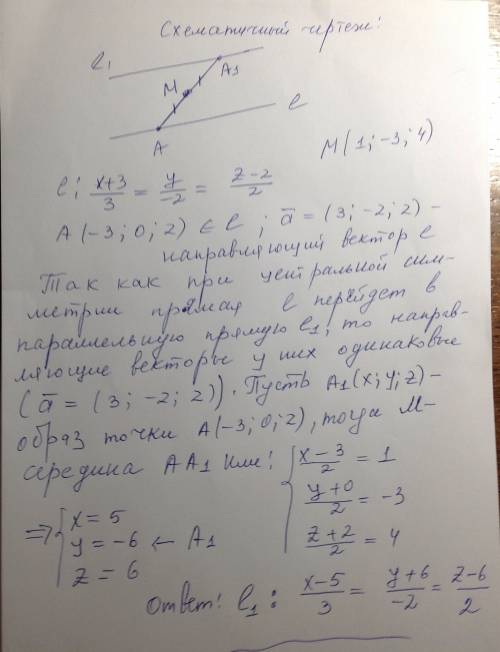 Схематичный чертеж:
l₁
A₁
M
l
A
M(1; -3; 4)
l: (x+3)/3 = y/-2 = (z-2)/2
A(-3; 0; 2) ∈ l; a̅ = (3; -2; 2) -
направляющий вектор l
Так как при центральной сим-
метрии прямая l перейдет в
параллельную прямую l₁, то направ-
ляющие векторы у них одинаковые
(a̅ = (3; -2; 2)). Пусть A₁(x; y; z) -
образ точки A(-3; 0; 2), тогда M-
середина AA₁ или:
{ (x-3)/2 = 1
(y+0)/2 = -3
(z+2)/2 = 4
⇒ { x = 5
y = -6 ← A₁
z = 6
Ответ: l₁: (x-5)/3 = (y+6)/-2 = (z-6)/2